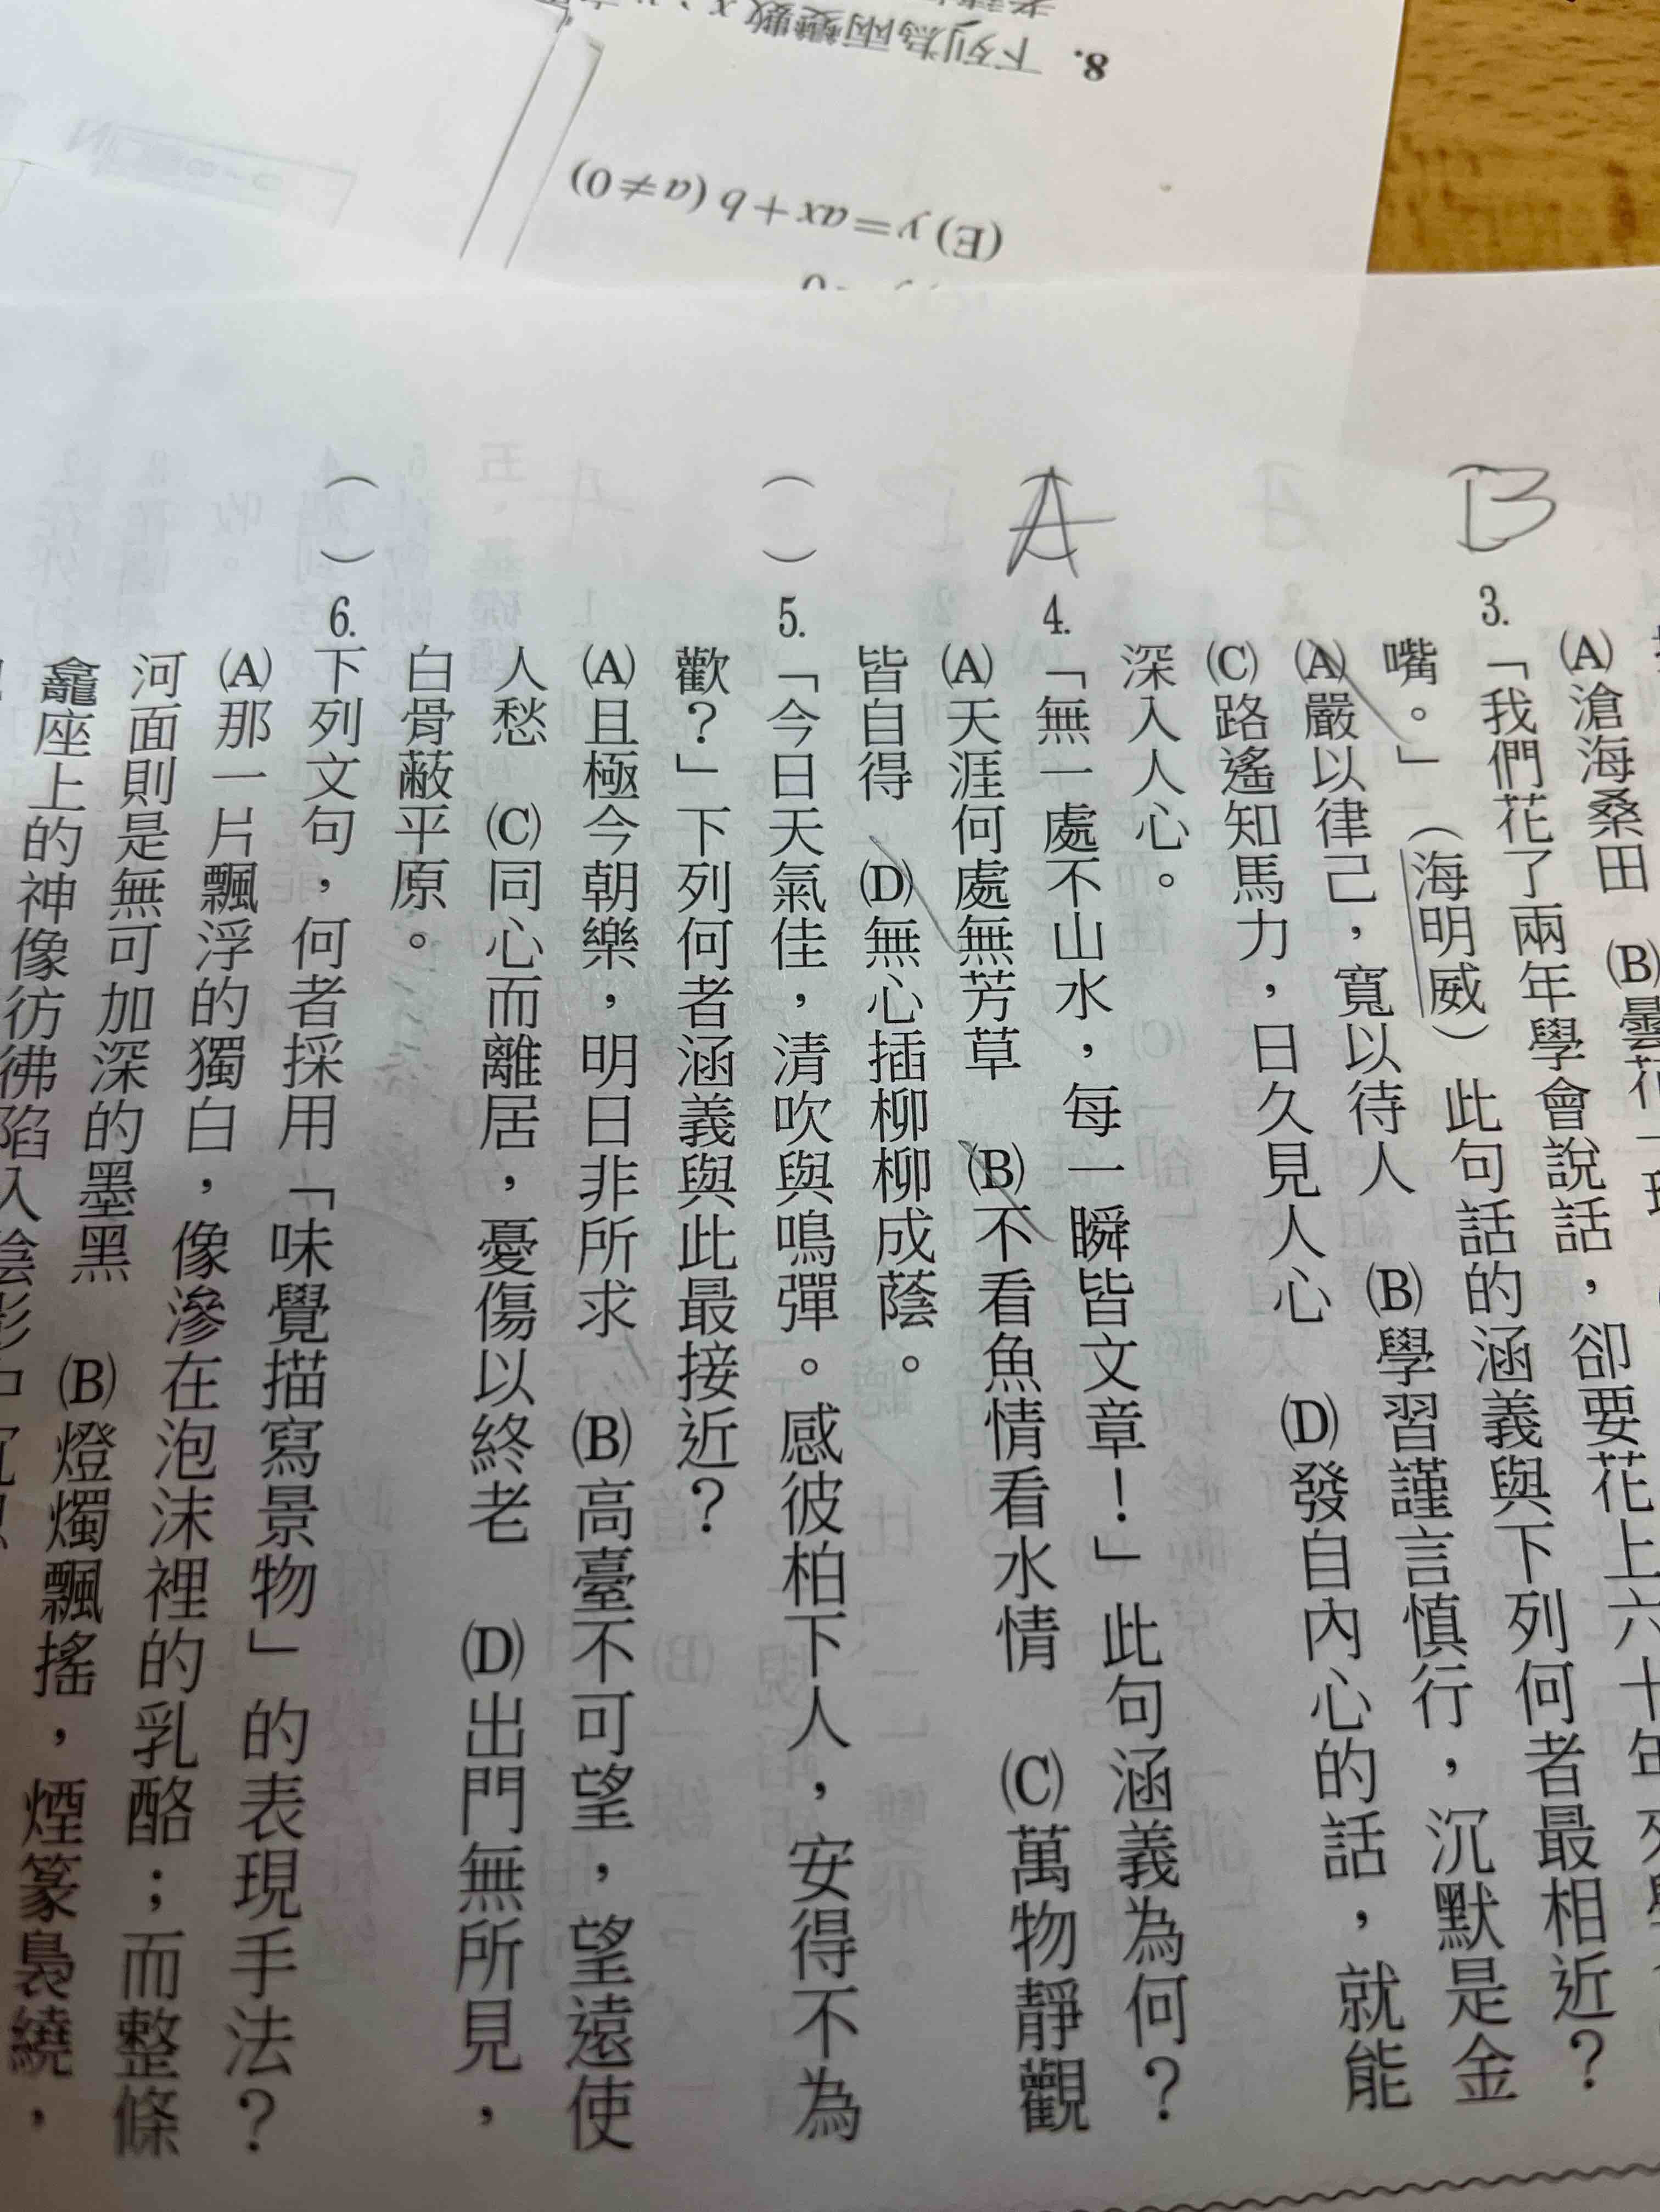 8. 下列為兩變數 x、y
(E) y=ax+b (a≠0)
(A)滄海桑田 (B)曇花一現
B 3.「我們花了兩年學會說話,卻要花上六十年來學
嘴。」(海明威)此句話的涵義與下列何者最相近?
(A)嚴以律己,寬以待人 (B)學習謹言慎行,沉默是金
(C)路遙知馬力,日久見人心 (D)發自內心的話,就能
深入人心。
A 4.「無一處不山水,每一瞬皆文章!」此句涵義為何?
(A)天涯何處無芳草 (B)不看魚情看水情 (C)萬物靜觀
皆自得 (D)無心插柳柳成蔭。
( ) 5.「今日天氣佳,清吹與鳴彈。感彼柏下人,安得不為
歡?」下列何者涵義與此最接近?
(A)且極今朝樂,明日非所求 (B)高臺不可望,望遠使
人愁 (C)同心而離居,憂傷以終老 (D)出門無所見,
白骨蔽平原。
( ) 6.下列文句,何者採用「味覺描寫景物」的表現手法?
(A)那一片飄浮的獨白,像滲在泡沫裡的乳酪;而整條
河面則是無可加深的墨黑 (B)燈燭飄搖,煙篆裊繞,
龕座上的神像彷彿陷入陰影中沉思